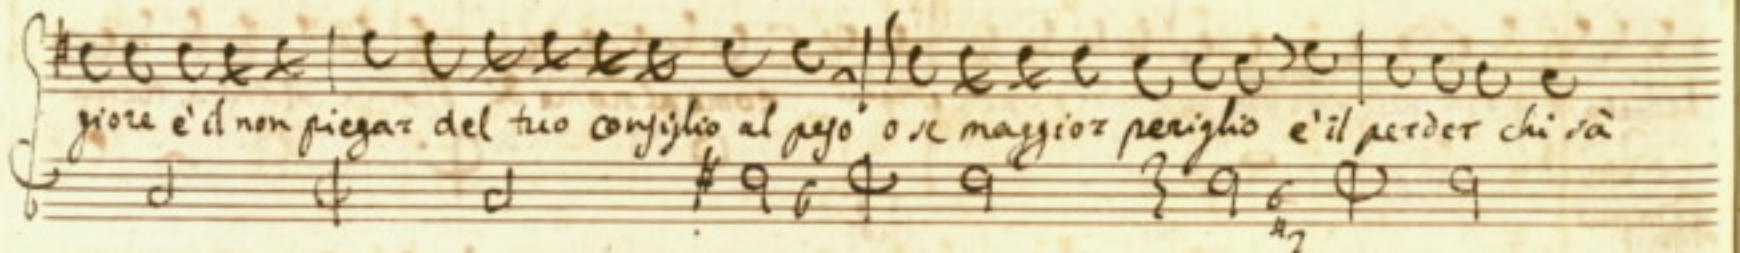 giore è il non piegar del tuo consiglio al peso o se maggior periglio è il perder chi sà
6 6